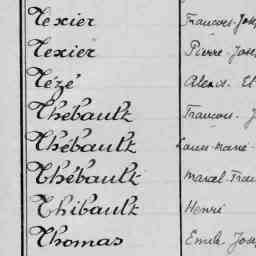 Texier François-Jose
Texier Pierre-Jose
Tézé Alexis-Et
Thebault François-J
Thébault Louis-Marie-
Thébault Marcel-Fran
Thibault Henri
Thomas Emile-Jose